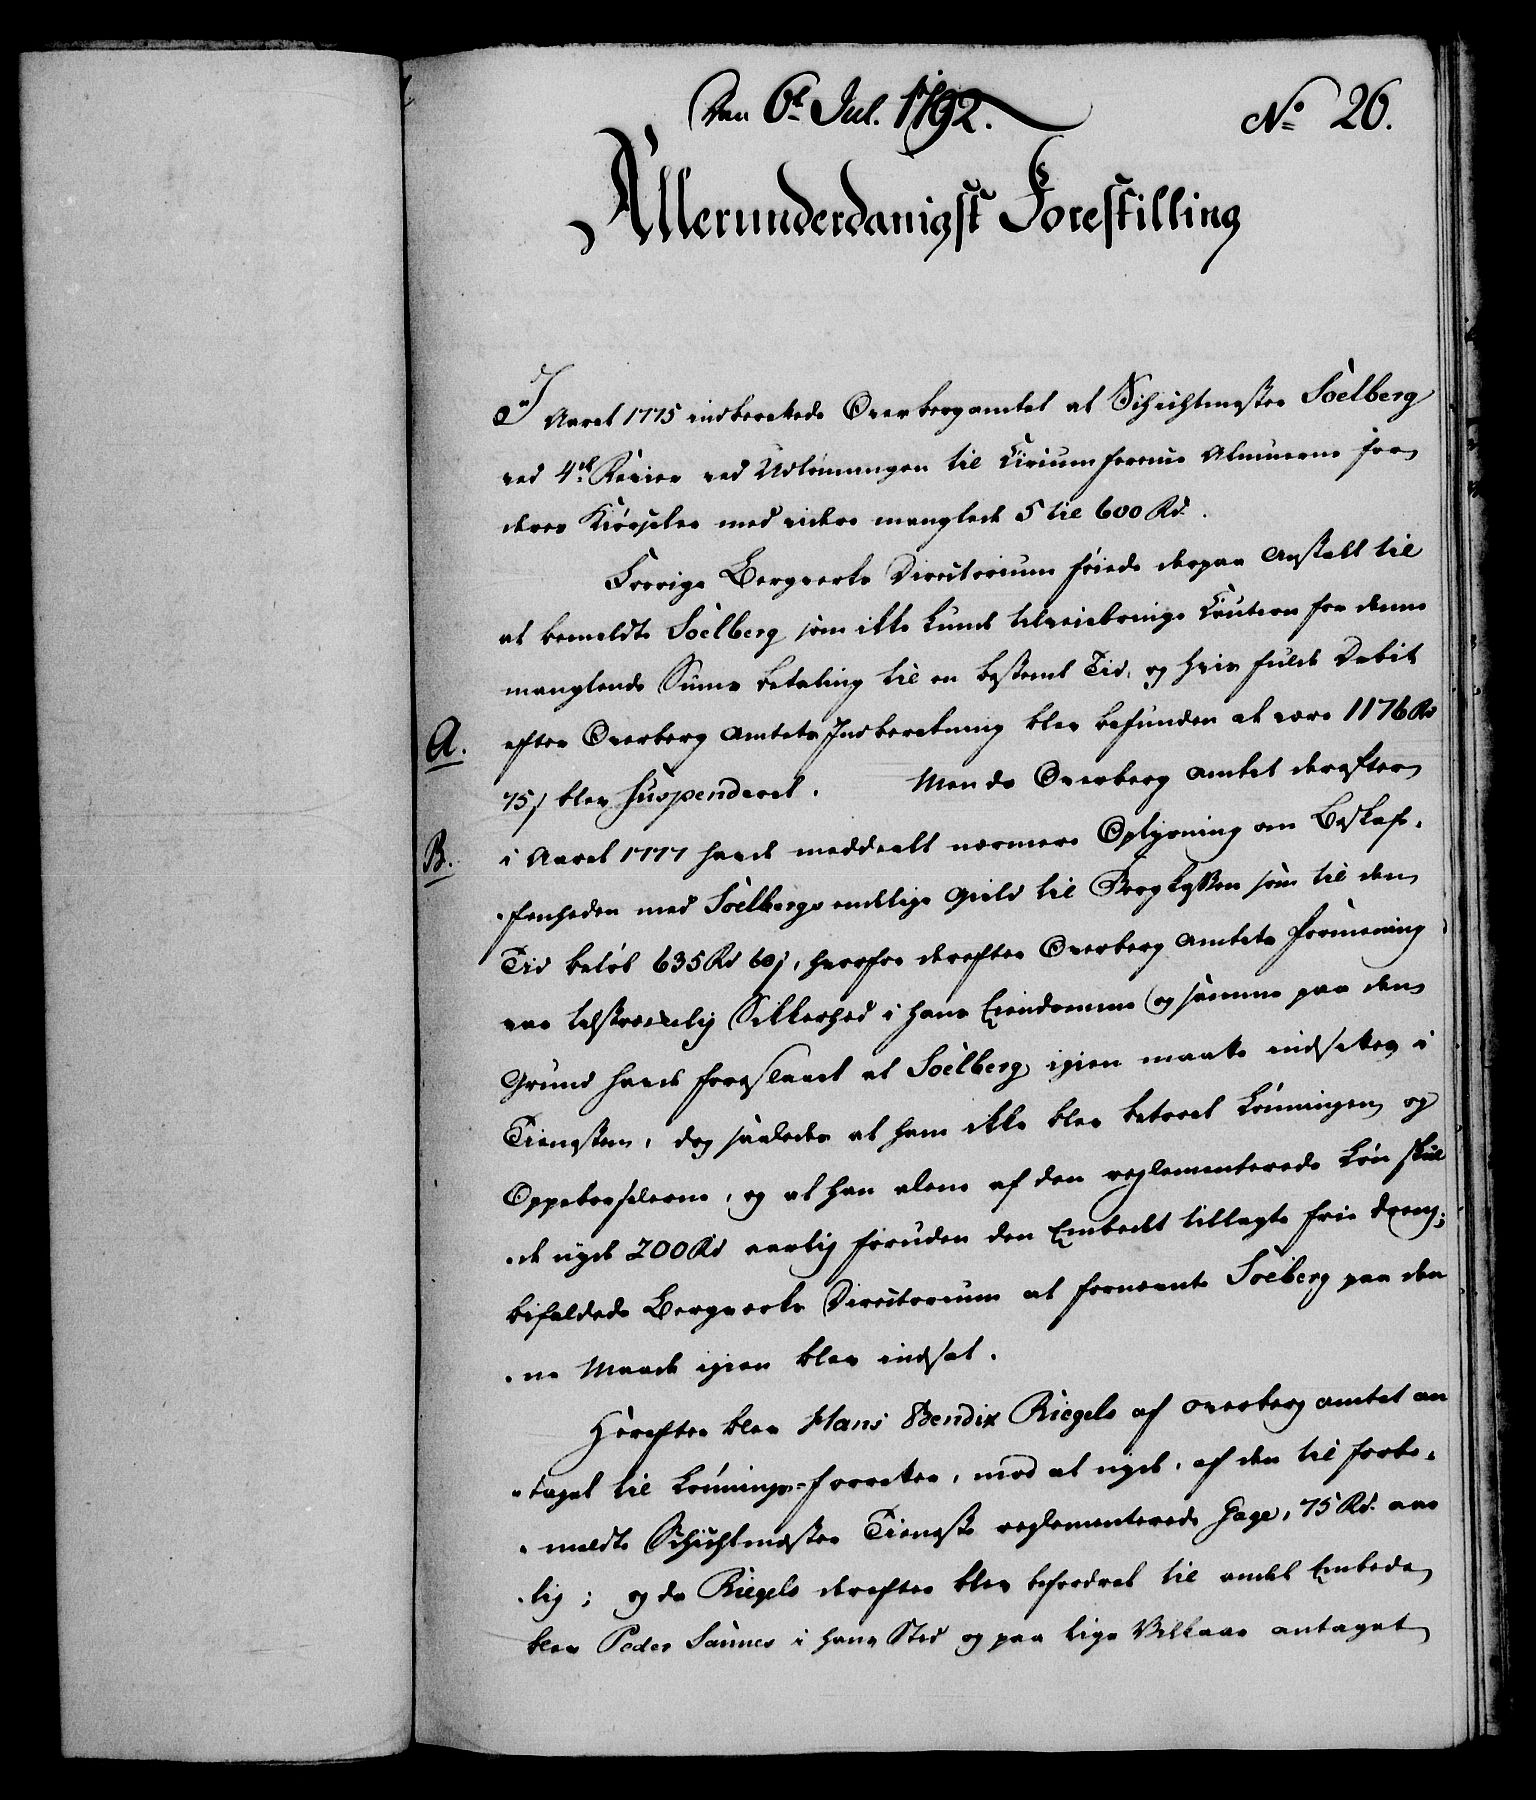 Den 6t Jul. 1792.
No 26.
Allerunderdanigst Forestilling
I Aaret 1775 indberettede Overbergamtet at Schichtmester Soelberg
ved 4de Revier ved Udlønningen til Almuerne for
deres Kiørseler med videre manglede 5 til 600 Rd.
Forrige Bergverks Directorium føiede derpaa Anstalt til
at bemeldte Soelberg som ikke kunde tilveiebringe Caution for denne
manglende Sums betaling til en bestemt Tid, og hvis fulde Debit
A.
efter Overberg Amtets Indberetning blev befunden at være 1176 Rd
75 s blev suspenderet. Men da Overberg Amtet derefter
B.
i Aaret 1777 havde meddeelt nærmere Oplysning om Beskaf-
-fenheden med Soelbergs endelige Gield til Bergkassen som til den
Tid beløb 635 Rd 60 s, hvorfor derefter Overberg Amtets Formening
var tilstrækkelig Sikkerhed i hans Eiendomme og samme paa den
Grund havde foreslaaet at Soelberg igien maatte indsættes i
Tienesten, dog saaledes at ham ikke blev betroet Lønningen og
Oppebørselerne, og at han alene af den reglementerede Løn skul
-de nyde 200 Rd aarlig foruden den Embedet tillagte frie Dreng;
bifaldede Bergverks Directorium at fornævnte Soeberg paa den
-ne Maade igien blev indsat.
Herefter blev Hans Bendix Riegels af Overberg Amtet an
-taget til Lønnings-Forretter, mod at nyde, af den til forbe-
-meldte Schichtmester Tieneste reglementerede Gage, 75 Rd. aar
-lig; og da Riegels derefter blev befordret til andet Embede
blev Peder Sannes i hans Sted og paa lige Vilkaar antaget